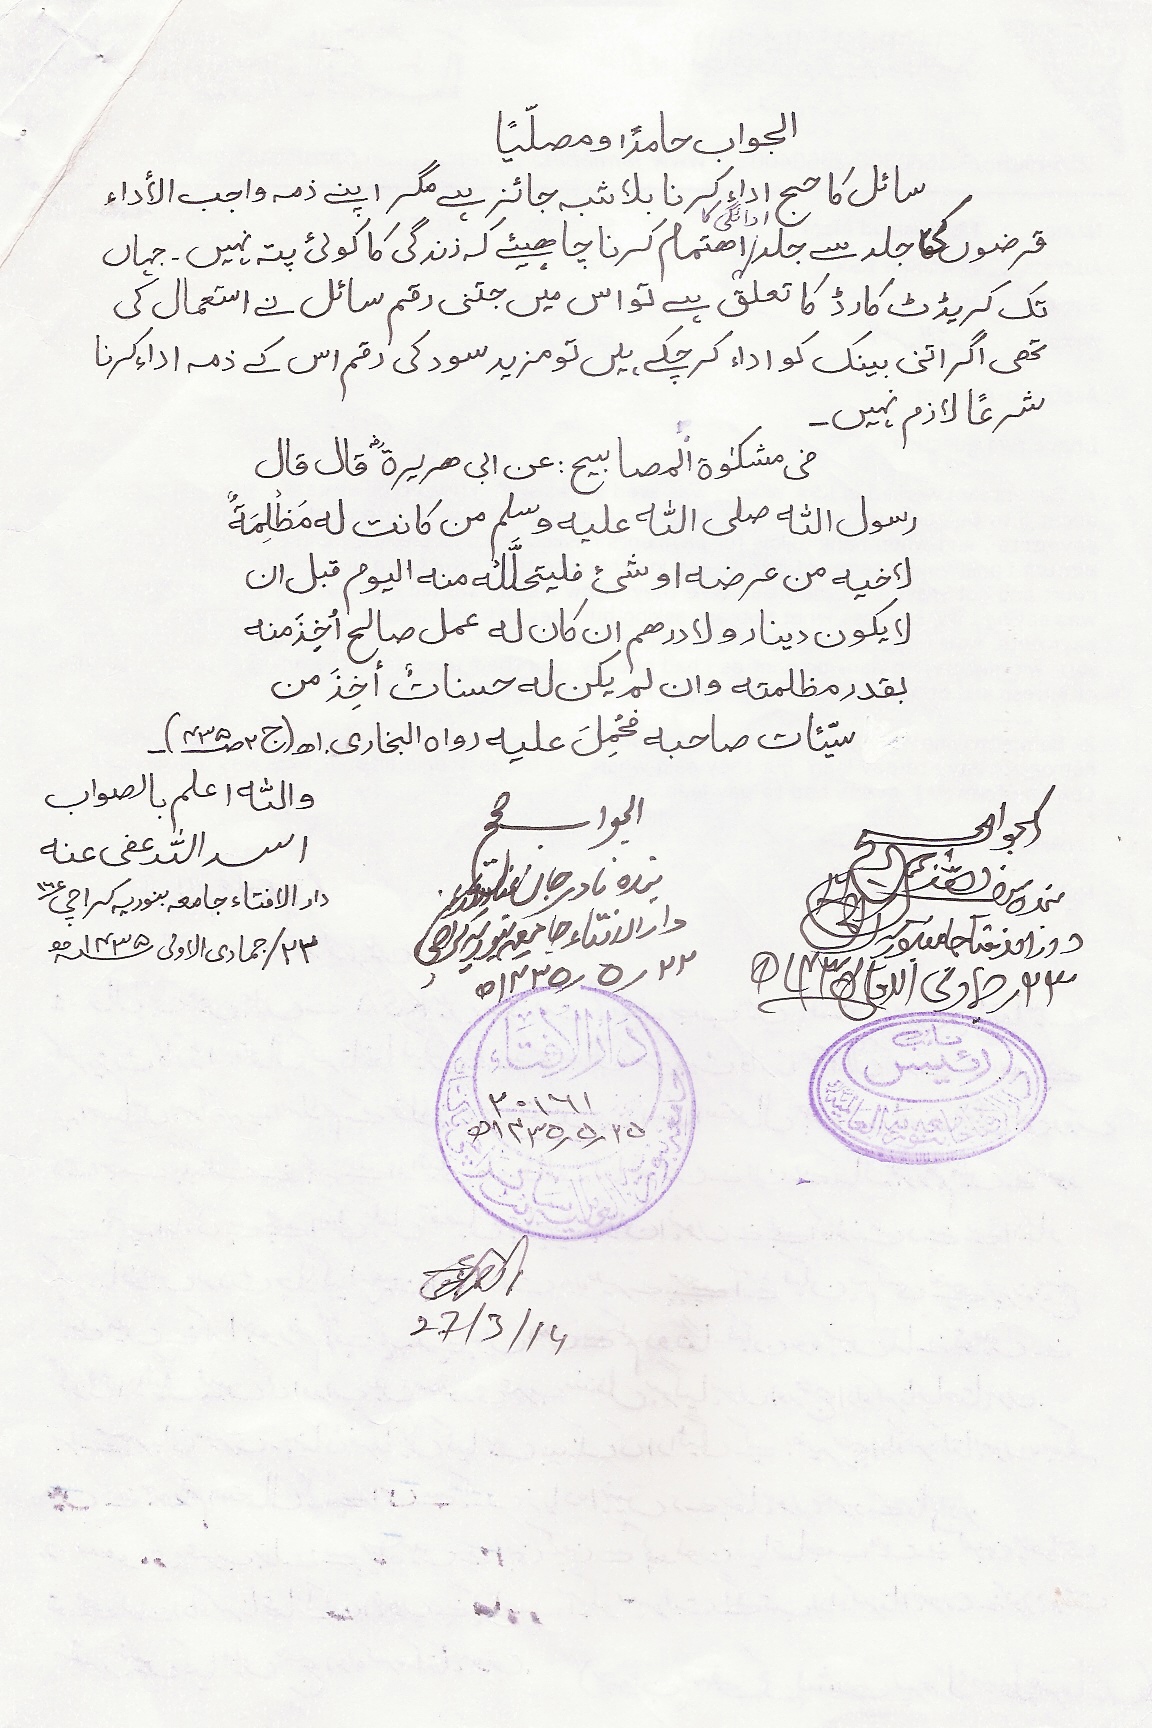 الجواب حامدًا ومصلّیًا
سائل کا حج اداء کرنا بلاشبہ جائز ہے مگر اپنے ذمہ واجب الأداء
قرضوں کی جلد سے جلد ادائگی کا اھتمام کرنا چاھیئے کہ زندگی کا کوئی پتہ نہیں۔ جہاں
تک کریڈٹ کارڈ کا تعلق ہے تو اس میں جتنی رقم سائل نے استعمال کی
تھی اگر اتنی بینک کو اداء کر چکے ہیں تو مزید سود کی رقم اس کے ذمہ اداء کرنا
شرعًا لازم نہیں۔
فی مشکوٰة المصابیح: عن ابی ھریرةؓ قال قال
رسول اللہ صلی اللہ علیہ وسلم من کانت لہ مَظْلِمَةٌ
لاخیہ من عرضہ او شئ فلیتحلَّلْہ منہ الیوم قبل ان
لا یکون دینار ولا درھم ان کان لہ عمل صالح أُخِذَ منہ
بقدر مظلمتہ وان لم یکن لہ حسناتٌ أخِذَ من
سیّئات صاحبہ فحُمِلَ علیہ رواہ البخاری۔ اھ (ج ۲ ص ۴۳۵)۔
واللہ اعلم بالصواب
اسد اللہ عفی عنہ
دار الافتاء جامعہ بنوریہ کراچی ۱۶
۲۳/جمادی الاولی ۱۴۳۵ھ
الجواب صحیح
بندہ نادر جان
دار الافتاء جامعہ بنوریہ کراچی
۲۳ / ۵ / ۱۴۳۵ھ
الجواب صحیح
بندہ
دار الافتاء جامعہ بنوریہ
۲۳
دار الافتاء
۳۰۱۶۱
۲۵ / ۵ / ۱۴۳۵ھ
جامعہ بنوریہ العالمیہ سائٹ
نائب
رئیس
دار الافتاء جامعہ بنوریہ العالمیہ
27/3/14